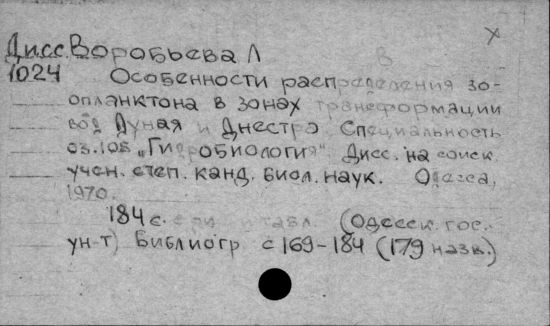 Дисс. Воробьева Л
1024 Особенности распределения зо-
опланктона в зонах трансформации
вод Дуная и Днестра Специальность
03.105 „Гидробиология" Дисс. на соиск.
учен. степ. канд. биол. наук. Одесса,
1970.
184 с. (Одесск. гос.
ун-т) Библиогр с 169-184 (179 назв.)